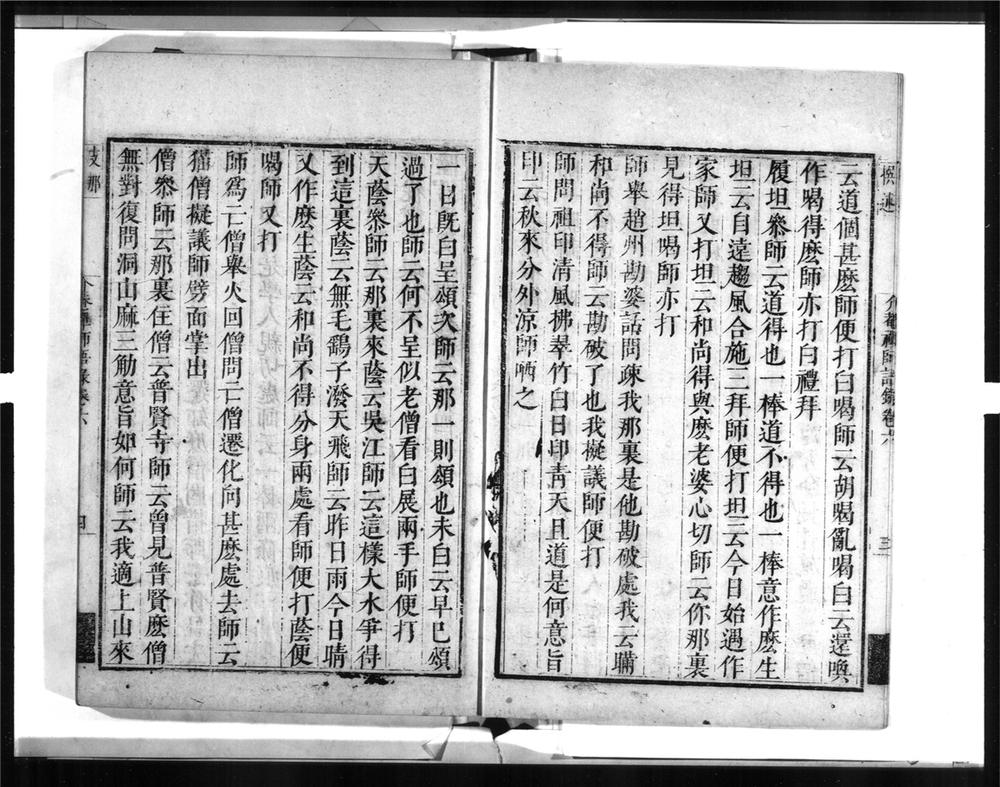 撰述
介菴禪師語錄卷六
三
云道個甚麽師便打臼喝師云胡喝亂喝臼云還喚
作喝得麽師亦打臼禮拜
履坦叅師云道得也一棒道不得也一棒意作麽生
坦云自遠趨風合施三拜師便打坦云今日始遇作
家師又打坦云和尚得與麽老婆心切師云你那裏
見得坦喝師亦打
師舉趙州勘婆話問疎我那裏是他勘破處我云瞞
和尚不得師云勘破了也我擬議師便打
師問祖印清風拂翠竹白日印青天且道是何意旨
印云秋來分外涼師哂之
一日旣白呈頌次師云那一則頌也未白云早已頌
過了也師云何不呈似老僧看白展兩手師便打
天蔭叅師云那裏來蔭云吳江師云這樣大水爭得
到這裏蔭云無毛鷂子潑天飛師云昨日雨今日晴
又作麽生蔭云和尚不得分身兩處看師便打蔭便
喝師又打
師爲亡僧舉火回僧問亡僧遷化向甚麽處去師云
猫僧擬議師劈面掌出
僧叅師云那裏住僧云普賢寺師云曾見普賢麽僧
無對復問洞山麻三觔意旨如何師云我適上山來
支那
介菴禪師語錄卷六
四